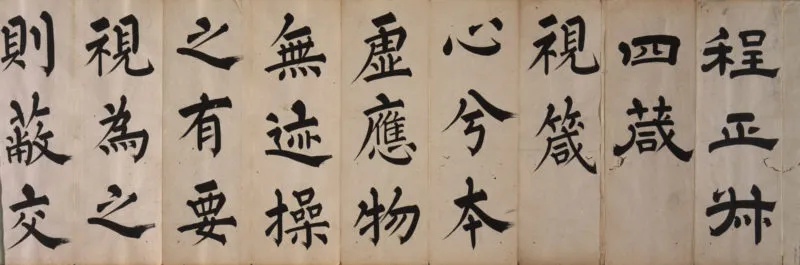 程正叔
四葴
視箴
心兮本
虛應物
無迹操
之有要
視為之
則蔽交